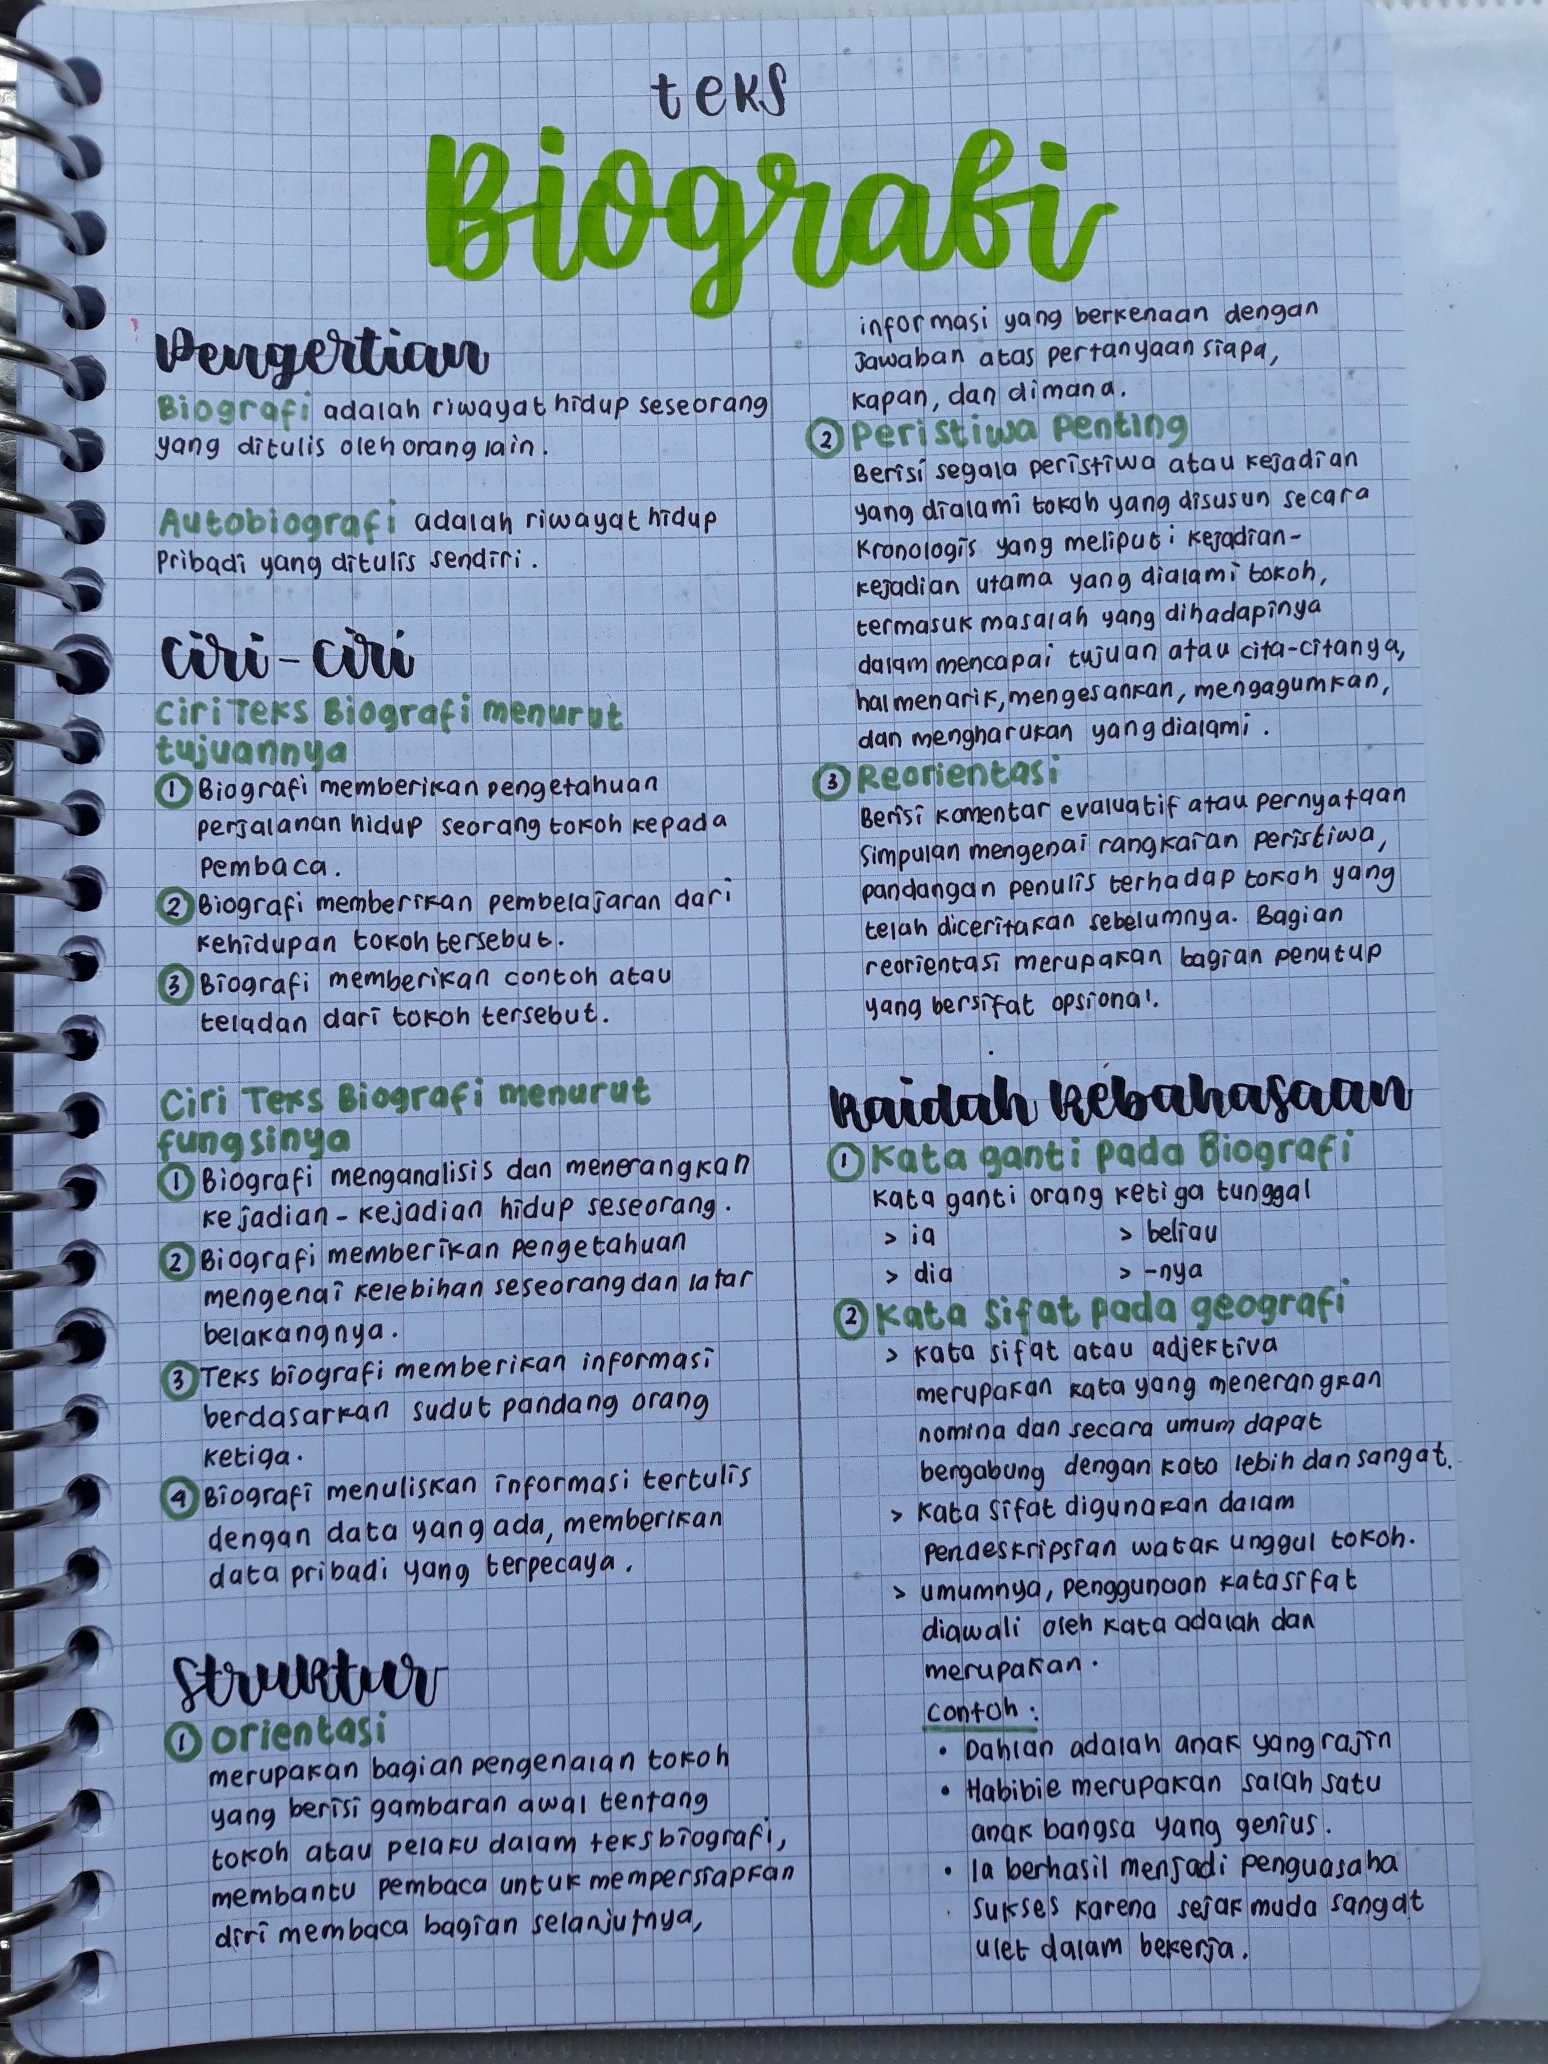 teks
Biografi
Pengertian
Biografi adalah riwayat hidup seseorang
yang ditulis oleh orang lain.
Autobiografi adalah riwayat hidup
pribadi yang ditulis sendiri.
Ciri-ciri
Ciri Teks Biografi menurut
tujuannya
1 Biografi memberikan pengetahuan
perjalanan hidup seorang tokoh kepada
pembaca.
2 Biografi memberikan pembelajaran dari
kehidupan tokoh tersebut.
3 Biografi memberikan contoh atau
teladan dari tokoh tersebut.
Ciri Teks Biografi menurut
fungsinya
1 Biografi menganalisis dan menerangkan
kejadian-kejadian hidup seseorang.
2 Biografi memberikan pengetahuan
mengenai kelebihan seseorang dan latar
belakangnya.
3 Teks biografi memberikan informasi
berdasarkan sudut pandang orang
ketiga.
4 Biografi menuliskan informasi tertulis
dengan data yang ada, memberikan
data pribadi yang terpecaya.
Struktur
1 Orientasi
merupakan bagian pengenalan tokoh
yang berisi gambaran awal tentang
tokoh atau pelaku dalam teks biografi,
membantu pembaca untuk mempersiapkan
diri membaca bagian selanjutnya,
informasi yang berkenaan dengan
jawaban atas pertanyaan siapa,
kapan, dan dimana.
2 Peristiwa Penting
Berisi segala peristiwa atau kejadian
yang dialami tokoh yang disusun secara
kronologis yang meliputi kejadian-
kejadian utama yang dialami tokoh,
termasuk masalah yang dihadapinya
dalam mencapai tujuan atau cita-citanya,
hal menarik, mengesankan, mengagumkan,
dan mengharukan yang dialami.
3 Reorientasi
Berisi komentar evaluatif atau pernyataan
simpulan mengenai rangkaian peristiwa,
pandangan penulis terhadap tokoh yang
telah diceritakan sebelumnya. Bagian
reorientasi merupakan bagian penutup
yang bersifat opsional.
Kaidah Kebahasaan
1 Kata ganti pada Biografi
Kata ganti orang ketiga tunggal
> ia > beliau
> dia > -nya
2 Kata Sifat pada geografi
> Kata sifat atau adjektiva
merupakan kata yang menerangkan
nomina dan secara umum dapat
bergabung dengan kata lebih dan sangat.
> Kata sifat digunakan dalam
pendeskripsian watak unggul tokoh.
> umumnya, penggunaan kata sifat
diawali oleh kata adalah dan
merupakan.
Contoh :
• Dahlan adalah anak yang rajin
• Habibie merupakan salah satu
anak bangsa yang genius.
• Ia berhasil menjadi penguasaha
sukses karena sejak muda sangat
ulet dalam bekerja.